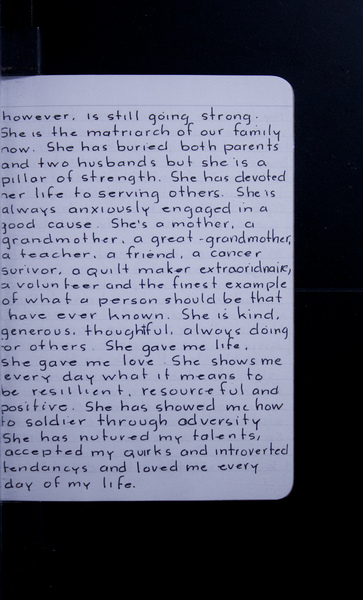 however, is still going strong.
She is the matriarch of our family
now. She has buried both parents
and two husbands but she is a
pillar of strength. She has devoted
her life to serving others. She is
always anxiously engaged in a
good cause. She's a mother, a
grandmother, a great-grandmother,
a teacher, a friend, a cancer
surivor, a quilt maker extraoridnair,
a volunteer and the finest example
of what a person should be that
I have ever known. She is kind,
generous, thoughtful, always doing
for others. She gave me life,
she gave me love. She shows me
every day what it means to
be resillient, resourceful and
positive. She has showed me how
to soldier through adversity
She has nutured my talents,
accepted my quirks and introverted
tendancys and loved me every
day of my life.